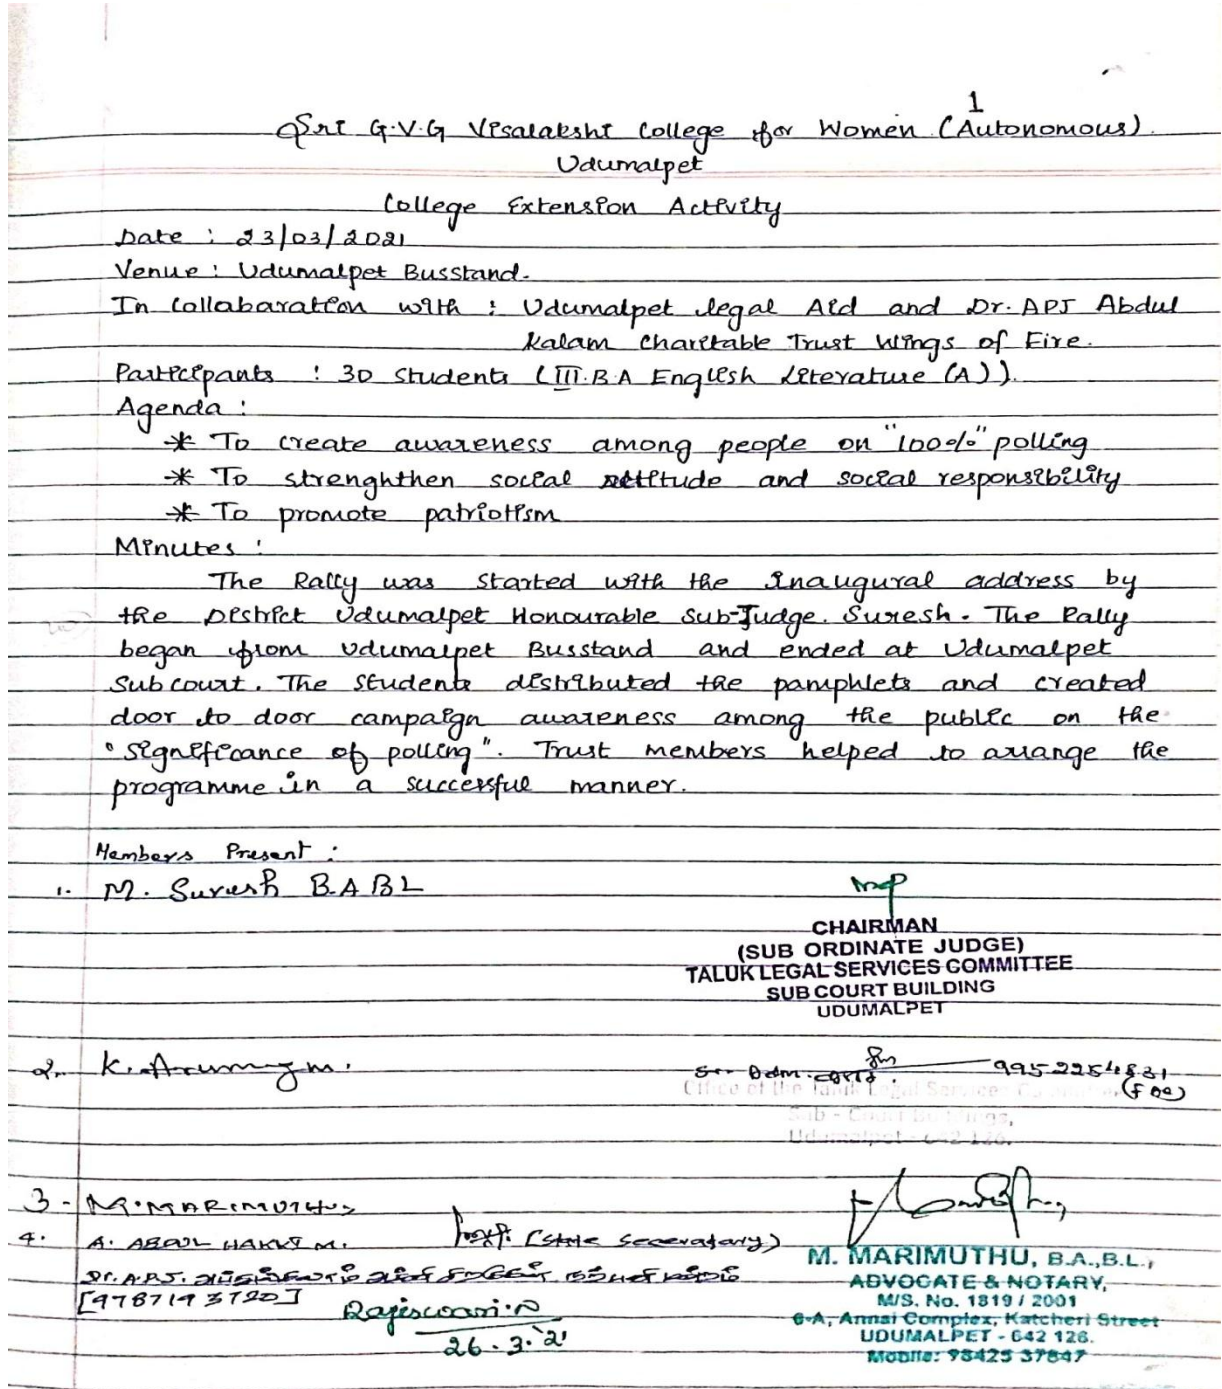 1
Sri G.V.G Visalakshi College for Women (Autonomous).
Udumalpet
College Extension Activity
Date : 23/03/2021
Venue : Udumalpet Busstand.
In Collabaration with : Udumalpet legal Aid and Dr. APJ Abdul
Kalam Charitable Trust Wings of Fire.
Participants : 30 Students (III.B.A English Literature (A)).
Agenda :
* To create awareness among people on "100%" polling
* To strenghthen social attitude and social responsibility
* To promote patriotism
Minutes :
The Rally was started with the Inaugural address by
the District Udumalpet Honourable Sub-Judge. Suresh. The Rally
began from Udumalpet Busstand and ended at Udumalpet
Subcourt. The Students distributed the pamphlets and created
door to door campaign awareness among the public on the
"Significance of polling". Trust members helped to arrange the
programme in a successful manner.
Members Present :
1. M. Suresh B.A BL
CHAIRMAN
(SUB ORDINATE JUDGE)
TALUK LEGAL SERVICES COMMITTEE
SUB COURT BUILDING
UDUMALPET
2. K. Arumugm.
9952254831
Office of the Taluk Legal Services
Sub - Court Buildings,
Udumalpet - 642 126.
3 - M. MARIMUTHU
4. A. ABDUL HAKKIM. (State Seceratary)
Dr. A.P.J.
[9787193720]
Rajeswari.N
26.3.'21
M. MARIMUTHU, B.A.,B.L.,
ADVOCATE & NOTARY,
M/S. No. 1819 / 2001
6-A, Annai Complex, Katcheri Street
UDUMALPET - 642 126.
Mobile: 98425 37847